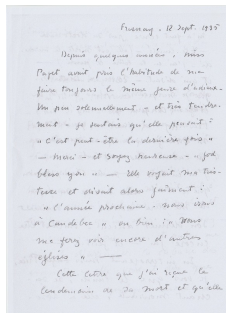 Fresnay - 12 Sept. 1935
Depuis quelques années, Miss
Paget avait pris l'habitude de me
faire toujours le même genre d'adieu.
Un peu solennellement - et très tendre-
ment - je sentais qu'elle pensait :
"C'est peut-être la dernière fois."
- Merci - et soyez heureuse - God
bless you - Elle voyait ma tris-
tesse et disait alors gaiement :
"l'année prochaine - nous irons
à Caudebec" ou bien : "Vous
me ferez voir encore d'autres
églises" -
Cette lettre que j'ai reçue le
lendemain de sa mort et qu'elle